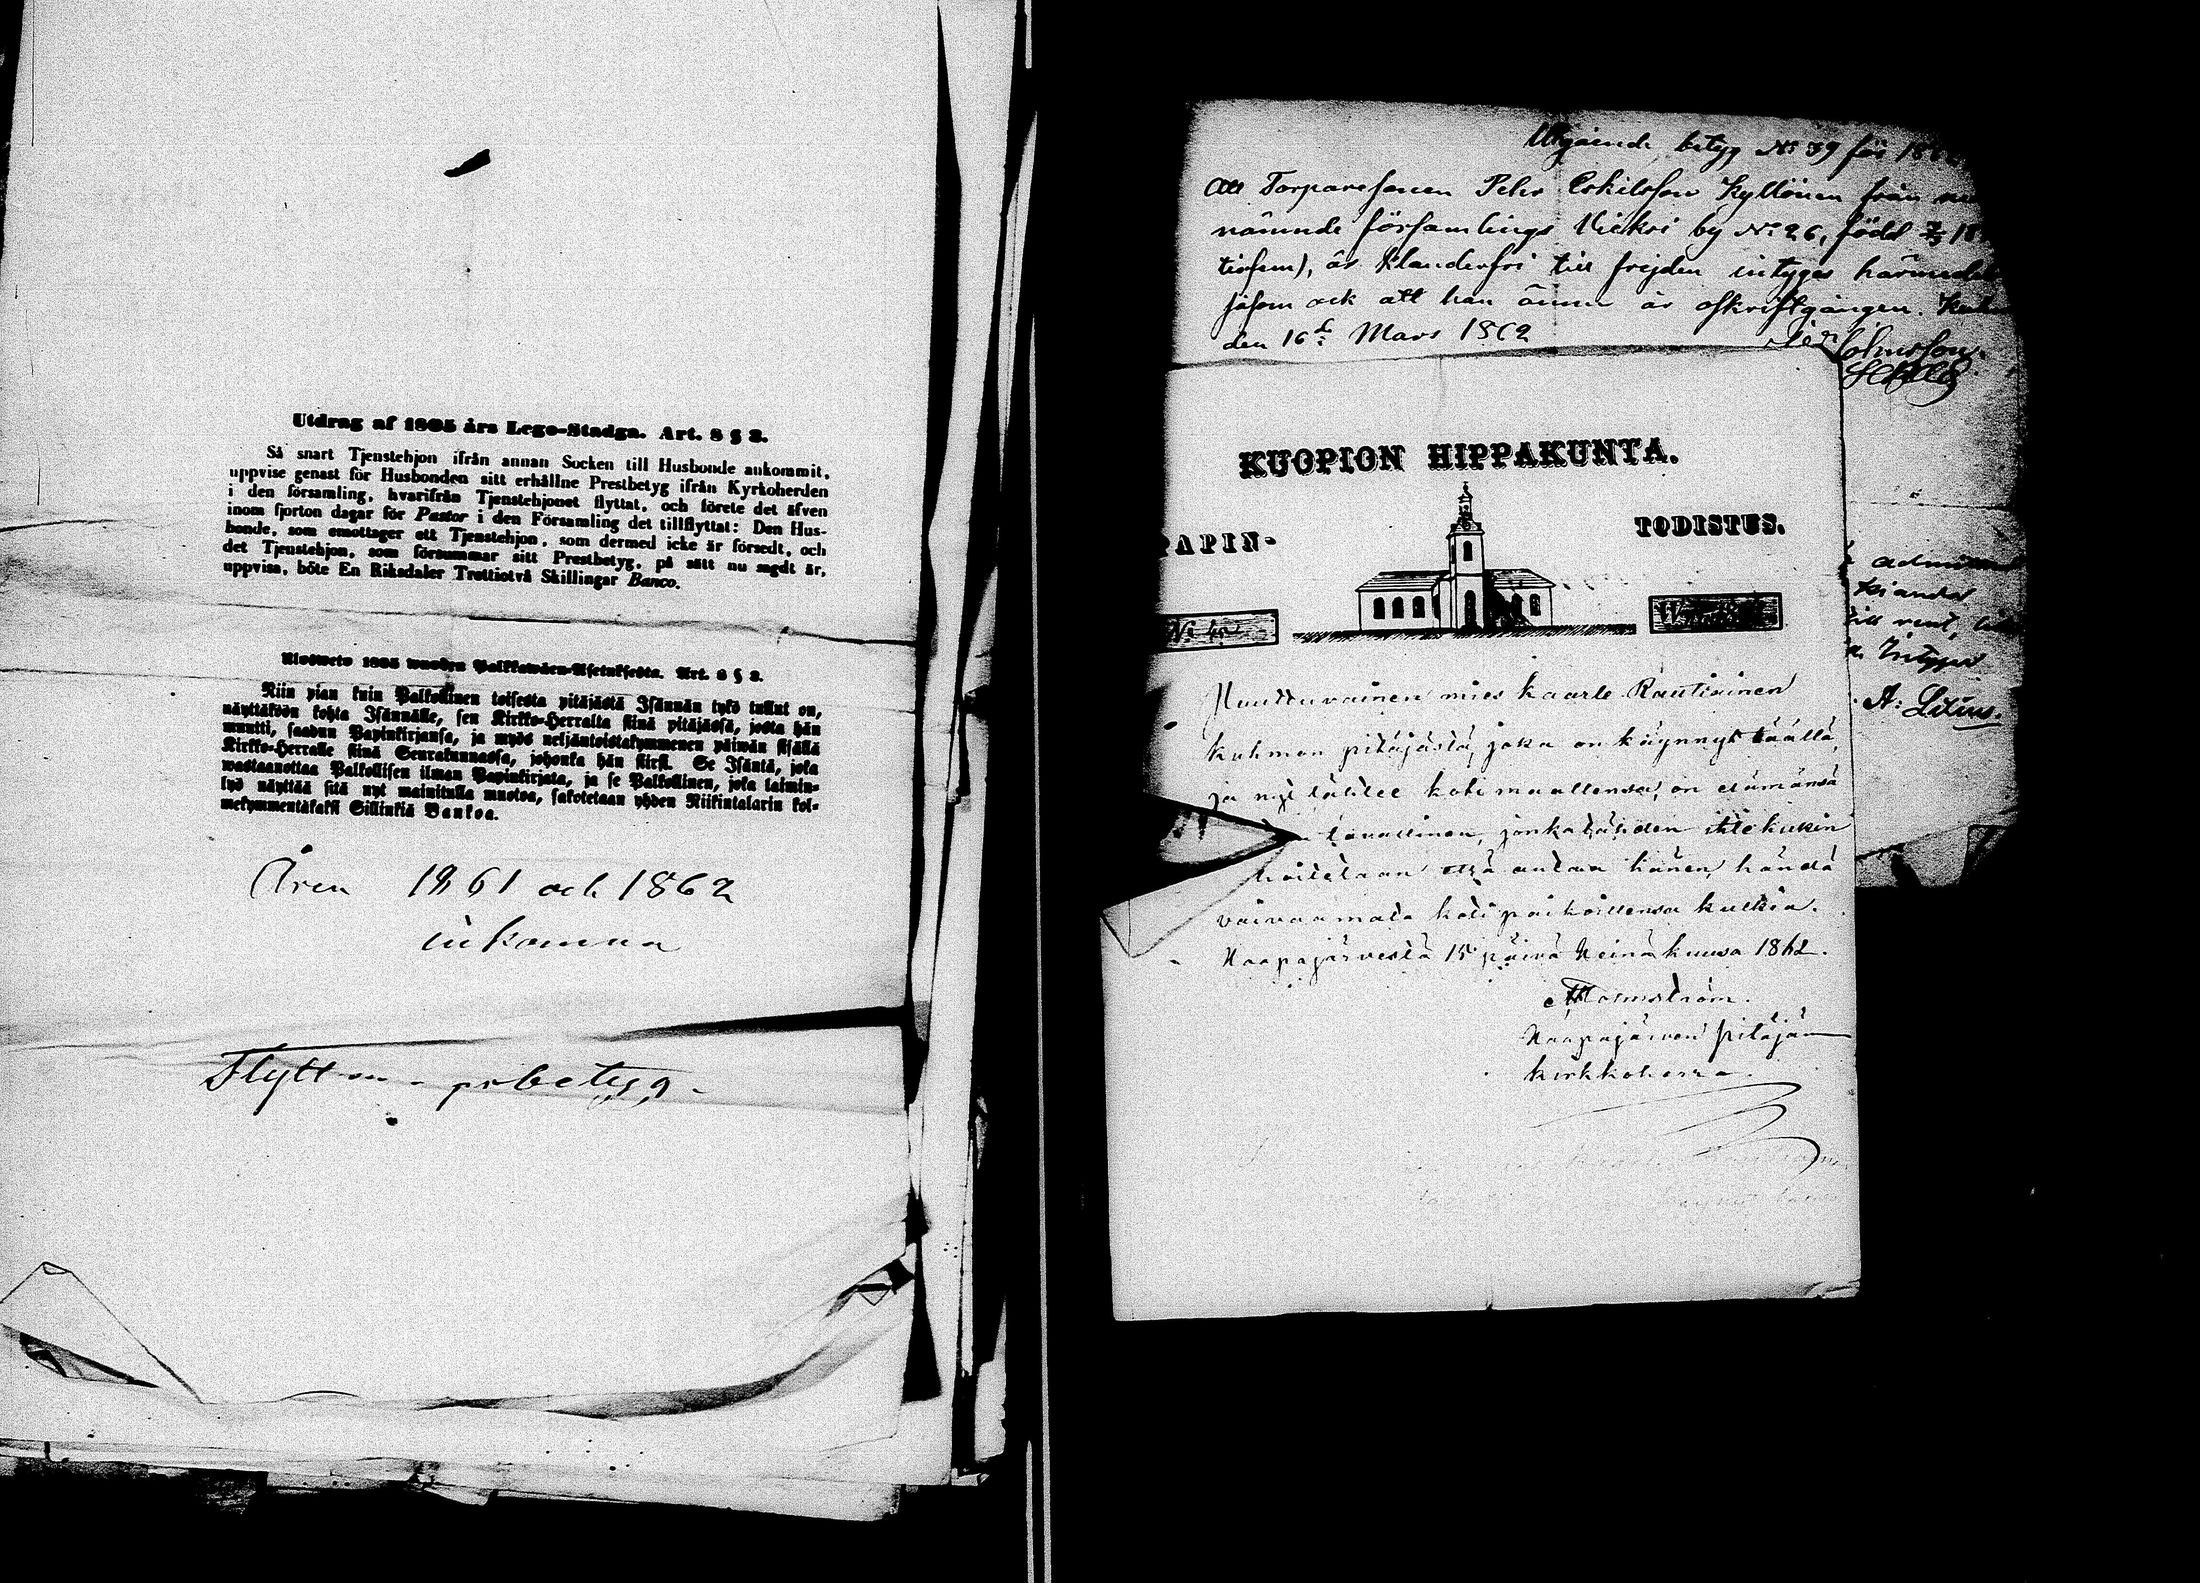 Utdrag af 1805 års Lego-Stadga. Art. 8 § 2.
Så snart Tjenstehjon ifrån annan Socken till Husbonde ankommit,
uppvise genast för Husbonden sitt erhållne Prestbetyg ifrån Kyrkoherden
i den församling, hvarifrån Tjenstehjonet flyttat, och förete det äfven
inom fjorton dagar för Pastor i den Församling det tillflyttat: Den Hus-
bonde, som emottager ett Tjenstehjon, som dermed icke är försedt, och
det Tjenstehjon, som försummar sitt Prestbetyg, på sätt nu sagdt är,
uppvisa, böte En Riksdaler Trettiotvå Skillingar Banco.
Ulosweto 1805 wuoden Palkkawäen-Asetuksesta. Art. 8 § 2.
Niin pian kuin Palkollinen toisesta pitäjästä Isännän tykö tullut on,
näyttäköön kohta Isännälle, sen Kirkko-Herralta siinä pitäjässä, josta hän
muutti, saadun Papinkirjansa, ja myös neljäntoistakymmenen päiwän sisällä
Kirkko-Herralle siinä Seurakunnassa, johonka hän siirsi. Se Isäntä, joka
wastaanottaa Palkollisen ilman Papinkirjata, ja se Palkollinen, joka laimin-
lyö näyttää sitä nyt mainitulla muotoa, sakotetaan yhden Riikintalarin kol-
mekymmentäkaksi Sillinkiä Bankoa.
Åren 1861 och 1862
inkomna
Flyttn - prbetyg -
Utgående betyg No 39 för 18
Att Torparesonen Pehr Eskilsson Kyllönen från
nämnde församlings Vieksi by No 26, född 18
tiofem), är klanderfri till frejden intygas härmedel
jäsom ock att han ännu är oskriftgången.
den 16de Mars 1862
KUOPION HIPPAKUNTA.
PAPIN-
TODISTUS.
No
Huuttuvainen mies Kaarle Rautiainen
Kuhmon pitäjästä, joka on käynnyt täällä,
ja nyt kotimaallensa, on elämänsä
tavallinen, jonkatähden itsekukin
antaa hänen, händä
vaivaamata kotipaikoillensa kulkia.
Haapajärvestä 15 päivä Heinäkuusa 1862.
Haapajärven pitäjän
kirkkoherra.
till
intygar
A. Litius.